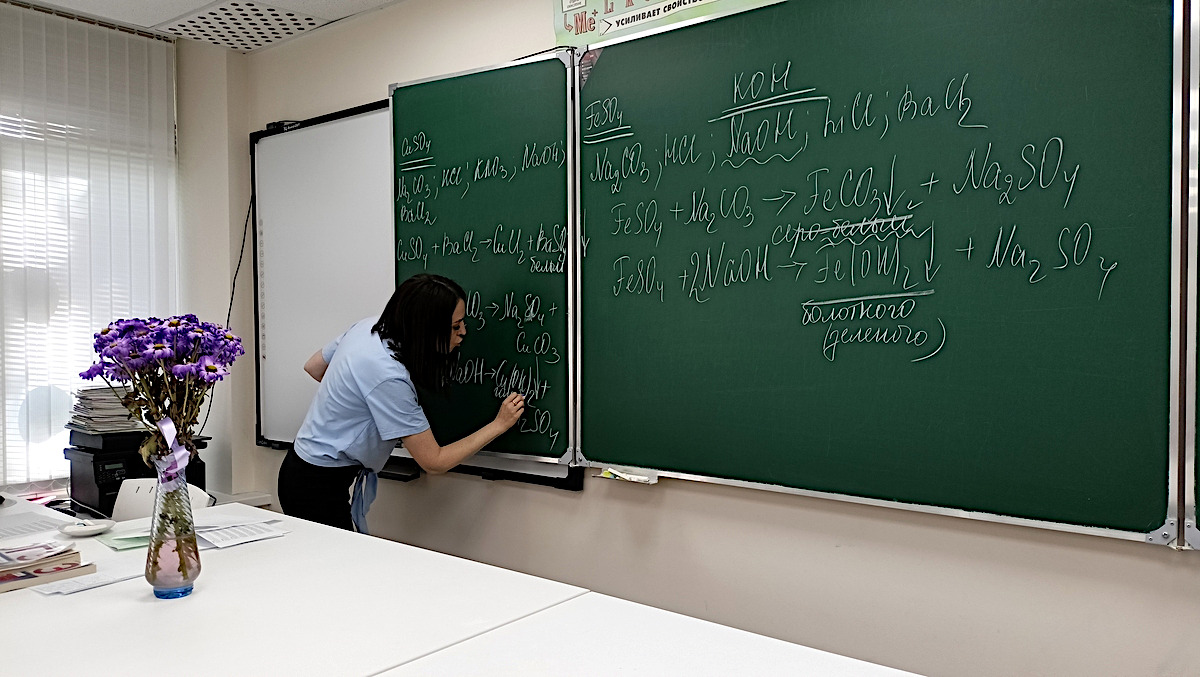 Me⁺ Li K
УСИЛИВАЕТ СВОЙСТВ
CuSO₄
Na₂CO₃; HCl; KNO₃, NaOH;
BaCl₂
CuSO₄ + BaCl₂ → CuCl₂ + BaSO₄
белый
CO₃ → Na₂SO₄ +
CuCO₃
NaOH → Cu(OH)₂↓ +
₂SO₄
FeSO₄
KOH
Na₂CO₃; HCl; NaOH; LiCl; BaCl₂
FeSO₄ + Na₂CO₃ → FeCO₃↓ + Na₂SO₄
серо-белый
FeSO₄ + 2NaOH → Fe(OH)₂↓ + Na₂SO₄
болотного
(зеленого)